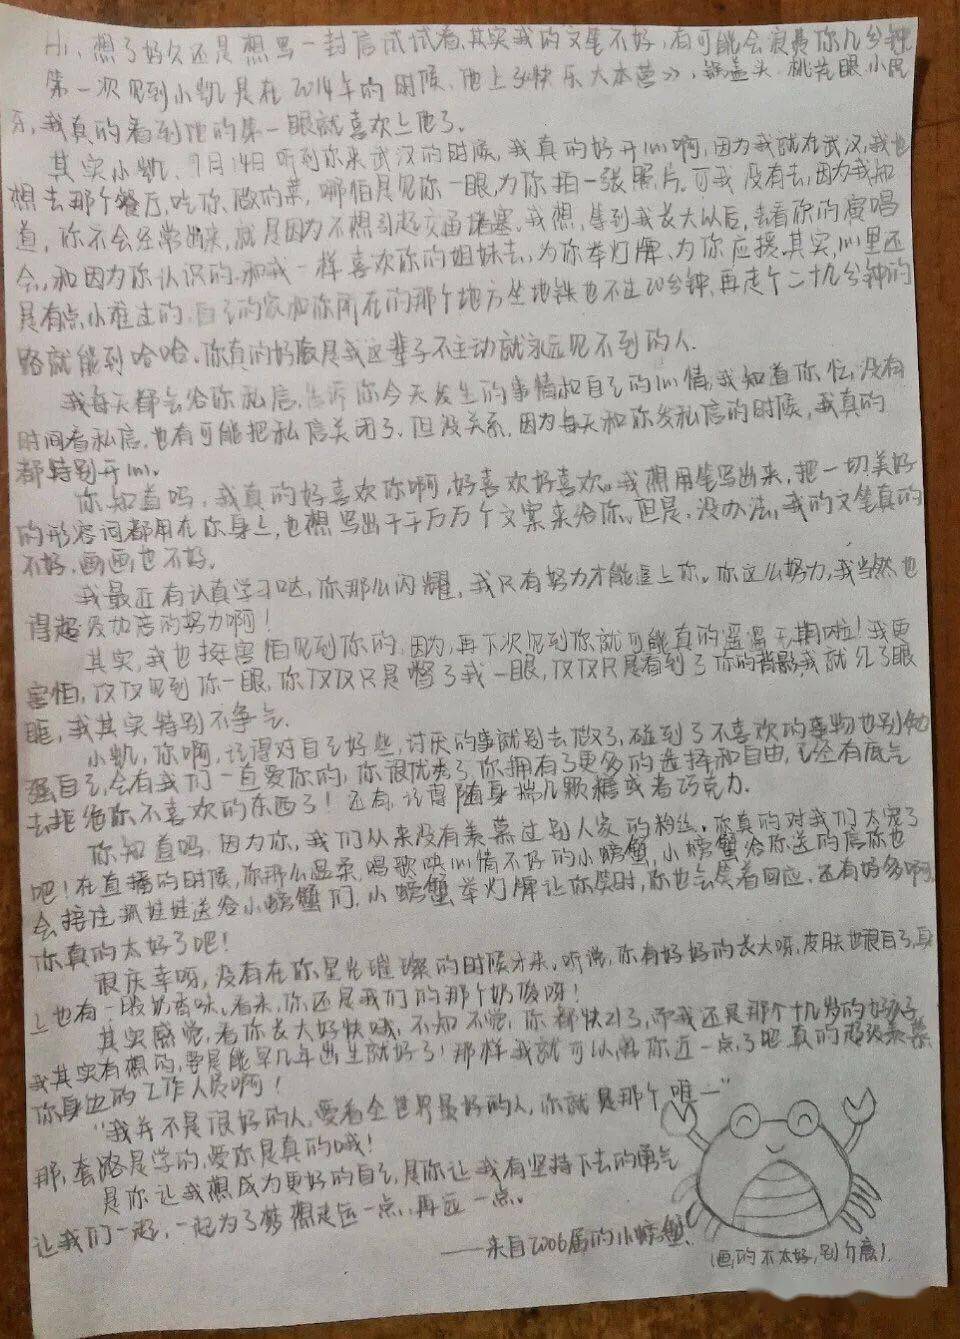 Hi,想了好久还是想写一封信试试看,其实我的文笔不好,有可能会浪费你几分钟
第一次见到小凯是在2014年的时候,他上《快乐大本营》,锅盖头,桃花眼,小虎
牙,我真的看到他的第一眼就喜欢上他了。
其实小凯,9月14日听到你来武汉的时候,我真的好开心啊,因为我就在武汉,我也
想去那个餐厅,吃你做的菜,哪怕是见你一眼,为你拍一张照片。可我没有去,因为我知
道,你不会经常出来,就是因为不想引起交通堵塞。我想,等到我长大以后,去看你的演唱
会,和因为你认识的,和我一样喜欢你的姐妹去,为你举灯牌,为你应援,其实,心里还
是有点小难过的,自己的家和你所在的那个地方坐地铁也不过20分钟,再走个二十九分钟的
路就能到哈哈。你真的好像是我这辈子不主动就永远见不到的人.
我每天都会给你私信,告诉你今天发生的事情和自己的心情,我知道你忙,没有
时间看私信,也有可能把私信关闭了,但没关系,因为每天和你发私信的时候,我真的
都特别开心。
你知道吗,我真的好喜欢你啊,好喜欢好喜欢。我想用笔写出来,把一切美好
的形容词都用在你身上,也想写出千千万万个文案来给你。但是,没办法,我的文笔真的
不好,画画也不好。
我最近有认真学习哒,你那么闪耀,我只有努力才能追上你。你这么努力,我当然也
得超级加倍的努力啊!
其实,我也挺害怕见到你的,因为,再下次见到你就可能真的遥遥无期啦!我更
害怕,仅仅见到你一眼,你仅仅只是瞥了我一眼,仅仅只是看到了你的背影,我就红了眼
眶,我其实特别不争气.
小凯,你啊,记得对自己好些,讨厌的事就别去做了,碰到了不喜欢的事物也别勉
强自己,会有我们一直爱你的,你很优秀了,你拥有了更多的选择和自由,已经有底气
去拒绝你不喜欢的东西了!还有,记得随身揣几颗糖或者巧克力.
你知道吗,因为你,我们从来没有羡慕过别人家的粉丝,你真的对我们太宠了
吧!在直播的时候,你那么温柔,唱歌哄心情不好的小螃蟹,小螃蟹给你送的信你也
会接住,抓娃娃送给小螃蟹们,小螃蟹举灯牌让你笑时,你也会笑着回应,还有好多啊,
你真的太好了吧!
很庆幸呀,没有在你星光璀璨的时候才来,听说,你有好好的长大呀,皮肤也很白了,身
上也有一股奶香味,看来,你还是我们的那个奶俊呀!
其实感觉,看你长大好快哦,不知不觉,你都快21了,而我还是那个十几岁的好孩子,
我其实有想的,要是能早几年出生就好了!那样我就可以离你近一点了吧,真的超级羡慕
你身边的工作人员啊!
“我并不是很好的人,要看全世界最好的人,你就是那个唯一”
那,套路是学的,爱你是真的哦!
是你让我想成为更好的自己,是你让我有坚持下去的勇气
让我们一起,一起为了梦想走远一点,再远一点。
——来自2006届的小螃蟹.
(画的不太好,别介意).